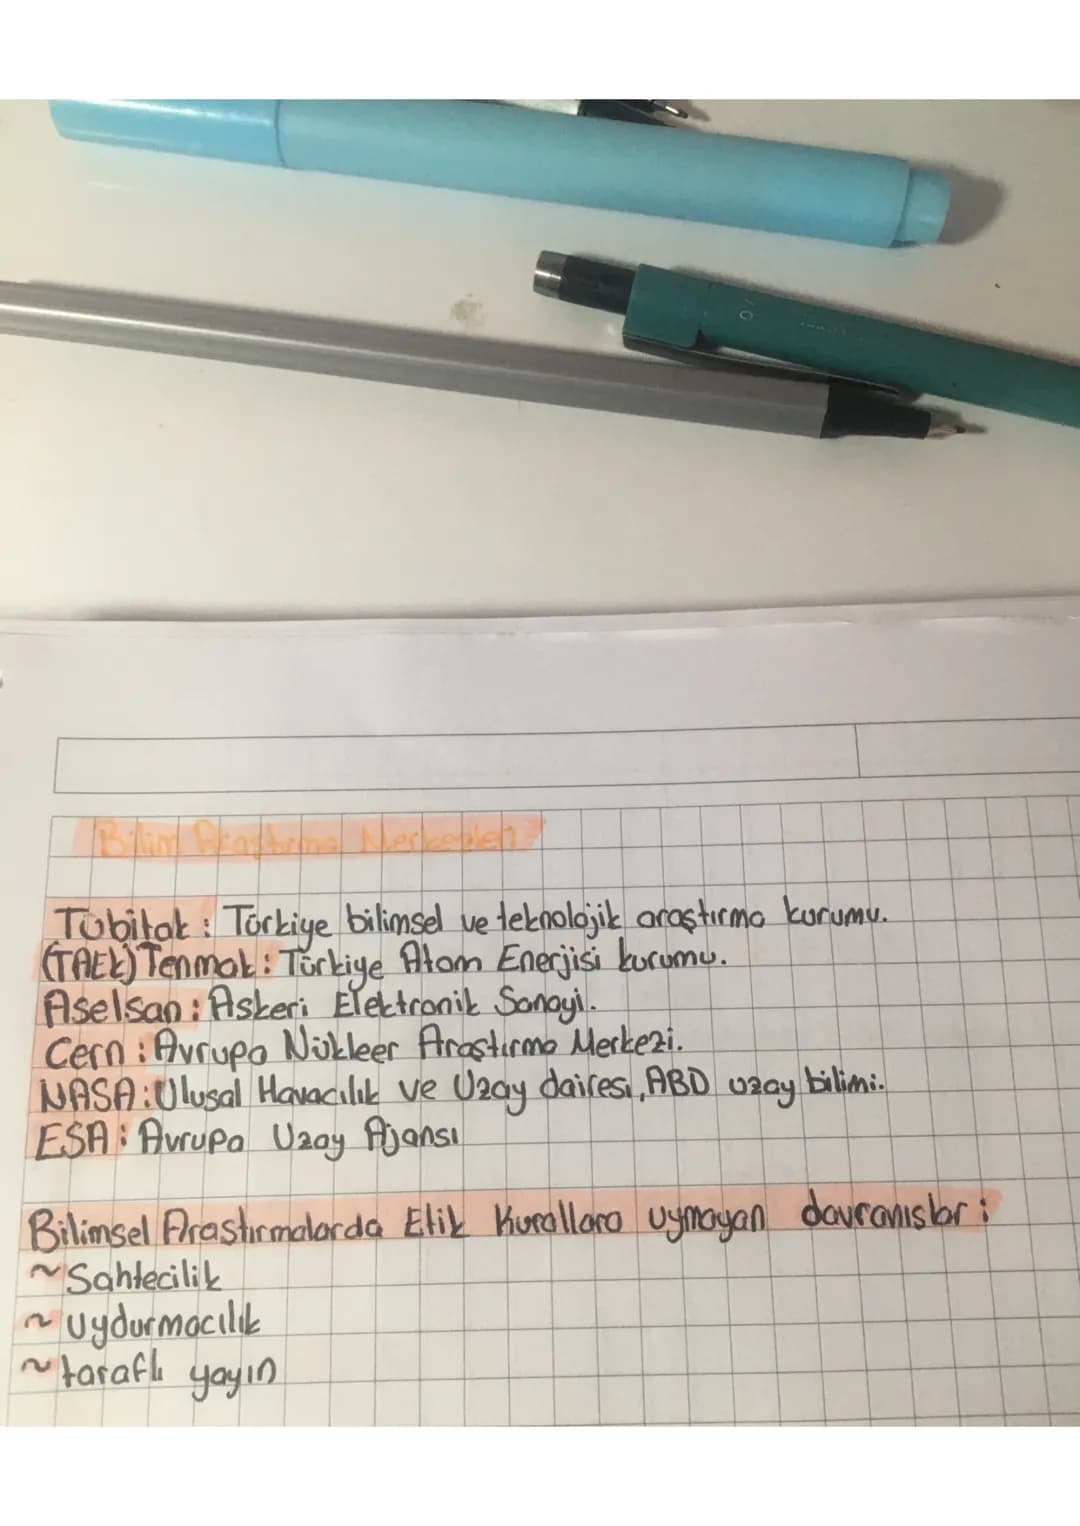 Bilim Araştırma Merkezleri
Tübitak : Türkiye bilimsel ve teknolojik araştırma kurumu.
(TAEK) Tenmak : Türkiye Atom Enerjisi kurumu.
Aselsan : Askeri Elektronik Sanayi.
Cern : Avrupa Nükleer Araştırma Merkezi.
NASA : Ulusal Havacılık ve Uzay dairesi, ABD uzay bilimi.
ESA : Avrupa Uzay Ajansı
Bilimsel Araştırmalarda Etik Kurallara uymayan davranışlar :
~ Sahtecilik
~ Uydurmacılık
~ taraflı yayın